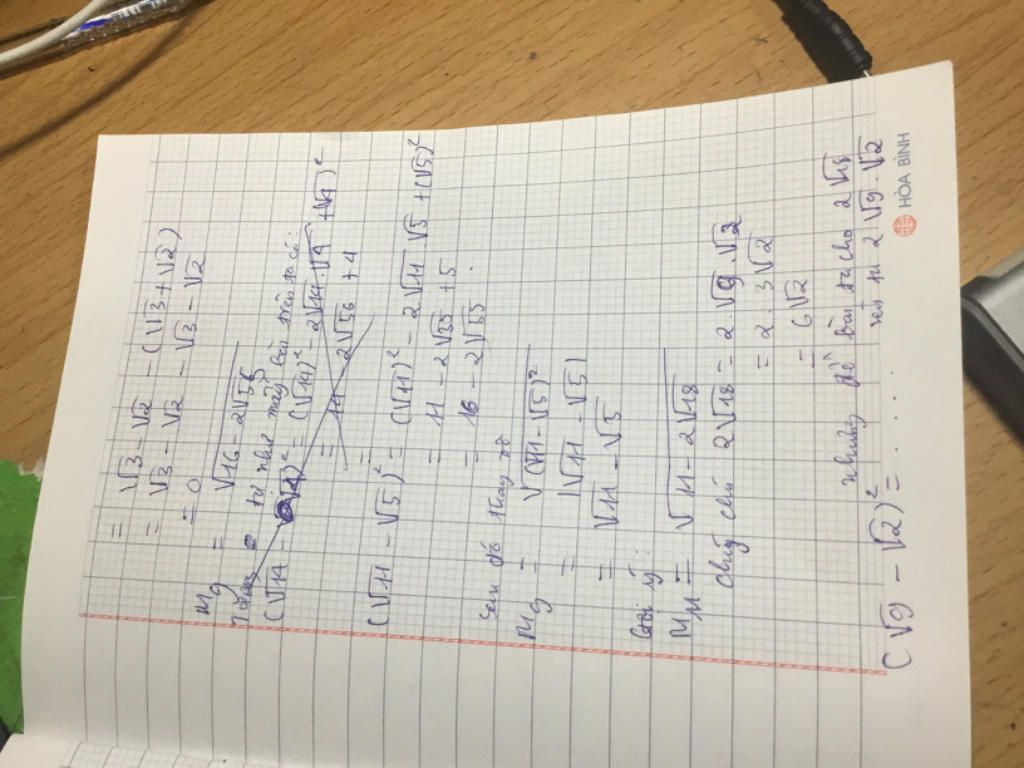 = √3 - √2 - (√3 + √2)
= √3 - √2 - √3 - √2
= 0
M9 = √16 - 2√55
từ như mấy bài trên ta có:
(√14 - √4)² = (√14)² - 2√14.√4 + (√4)²
= 14 - 2√56 + 4
(√11 - √5)² = (√11)² - 2√11 √5 + (√5)²
= 11 - 2√55 + 5
= 16 - 2√55.
Sau đó thay vô
M9 = √(√11 - √5)²
= |√11 - √5|
= √11 - √5
Gợi ý:
M11 = √11 - 2√18
chú ý 2√18 = 2.√9.√2
= 2.3√2
= 6√2
nhưng đề bài ta cho 2√18
nên từ 2√9.√2
(√9 - √2)² = .....
HÒA BÌNH